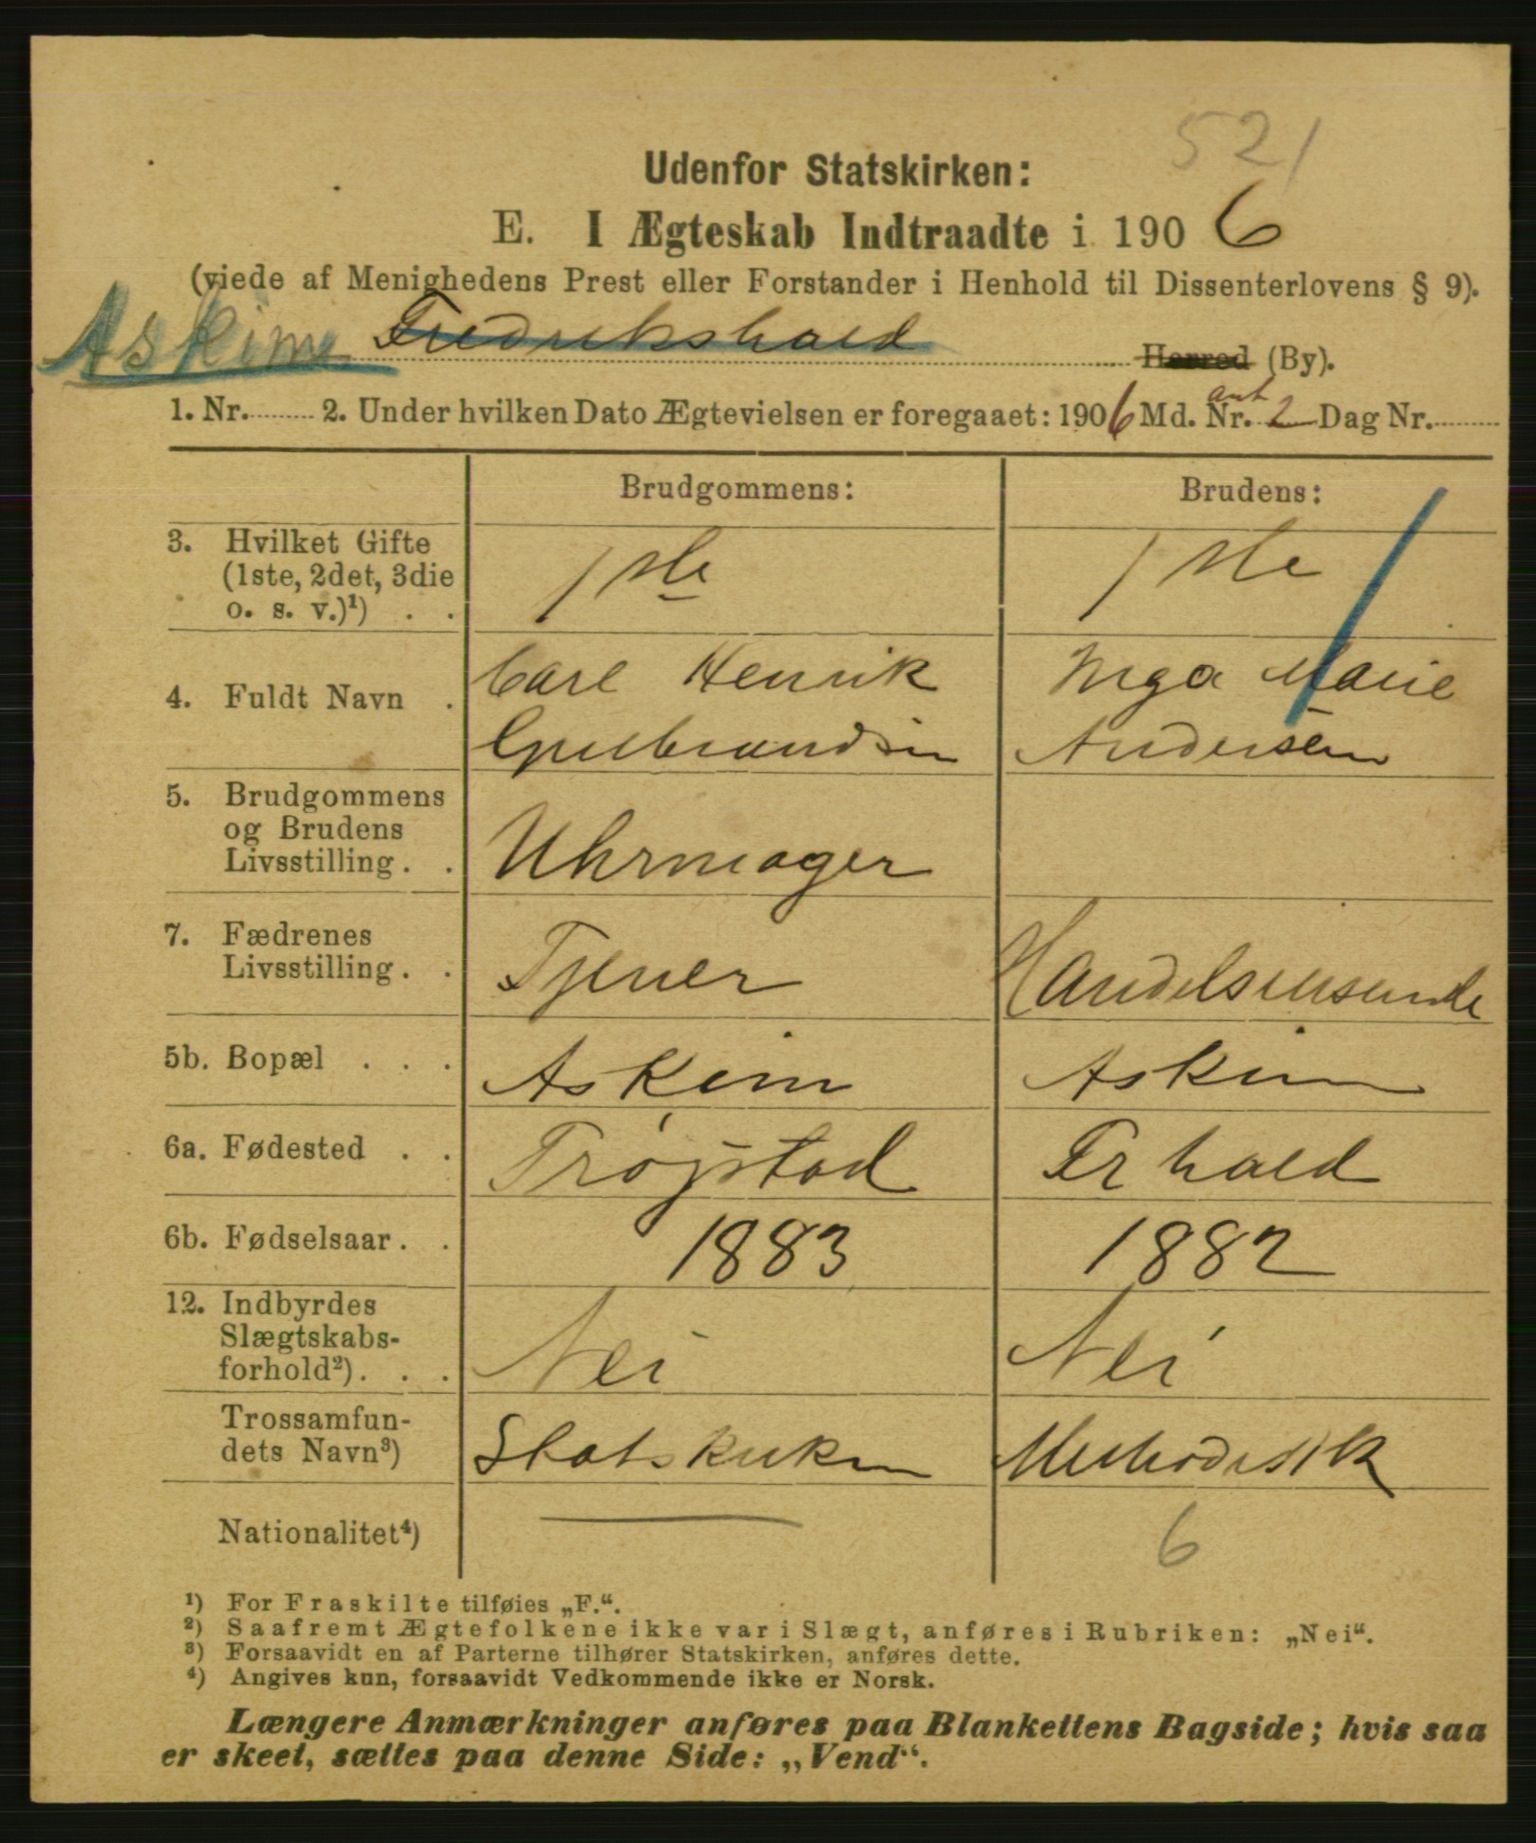 521
Udenfor Statskirken:
E. I Ægteskab Indtraadte i 1906
(viede af Menighedens Prest eller Forstander i Henhold til Dissenterlovens § 9).
Askim Fredrikshald Herred (By).
1. Nr. 2. Under hvilken Dato Ægtevielsen er foregaaet: 1906 Md. Nr. 2 Dag Nr.
Brudgommens: Brudens:
3. Hvilket Gifte (1ste, 2det, 3die o. s. v.)¹) . . 1ste 1ste
4. Fuldt Navn . Carl Henrik Inga Marie
Gulbrandsen Andersen
5. Brudgommens
og Brudens
Livsstilling . . Uhrmager
7. Fædrenes
Livsstilling . . Tjener Handelsreisende
5b. Bopæl . . . Askim Askim
6a. Fødested . . Trøgstad Frhald
6b. Fødselsaar . . 1883 1882
12. Indbyrdes
Slægtskabs-
forhold²) . . . Nei Nei
Trossamfun-
dets Navn³) Statskirken Methodistk
Nationalitet⁴) 6
¹) For Fraskilte tilføies „F.“.
²) Saafremt Ægtefolkene ikke var i Slægt, anføres i Rubriken: „Nei“.
³) Forsaavidt en af Parterne tilhører Statskirken, anføres dette.
⁴) Angives kun, forsaavidt Vedkommende ikke er Norsk.
Længere Anmærkninger anføres paa Blankettens Bagside; hvis saa
er skeet, sættes paa denne Side: „Vend“.